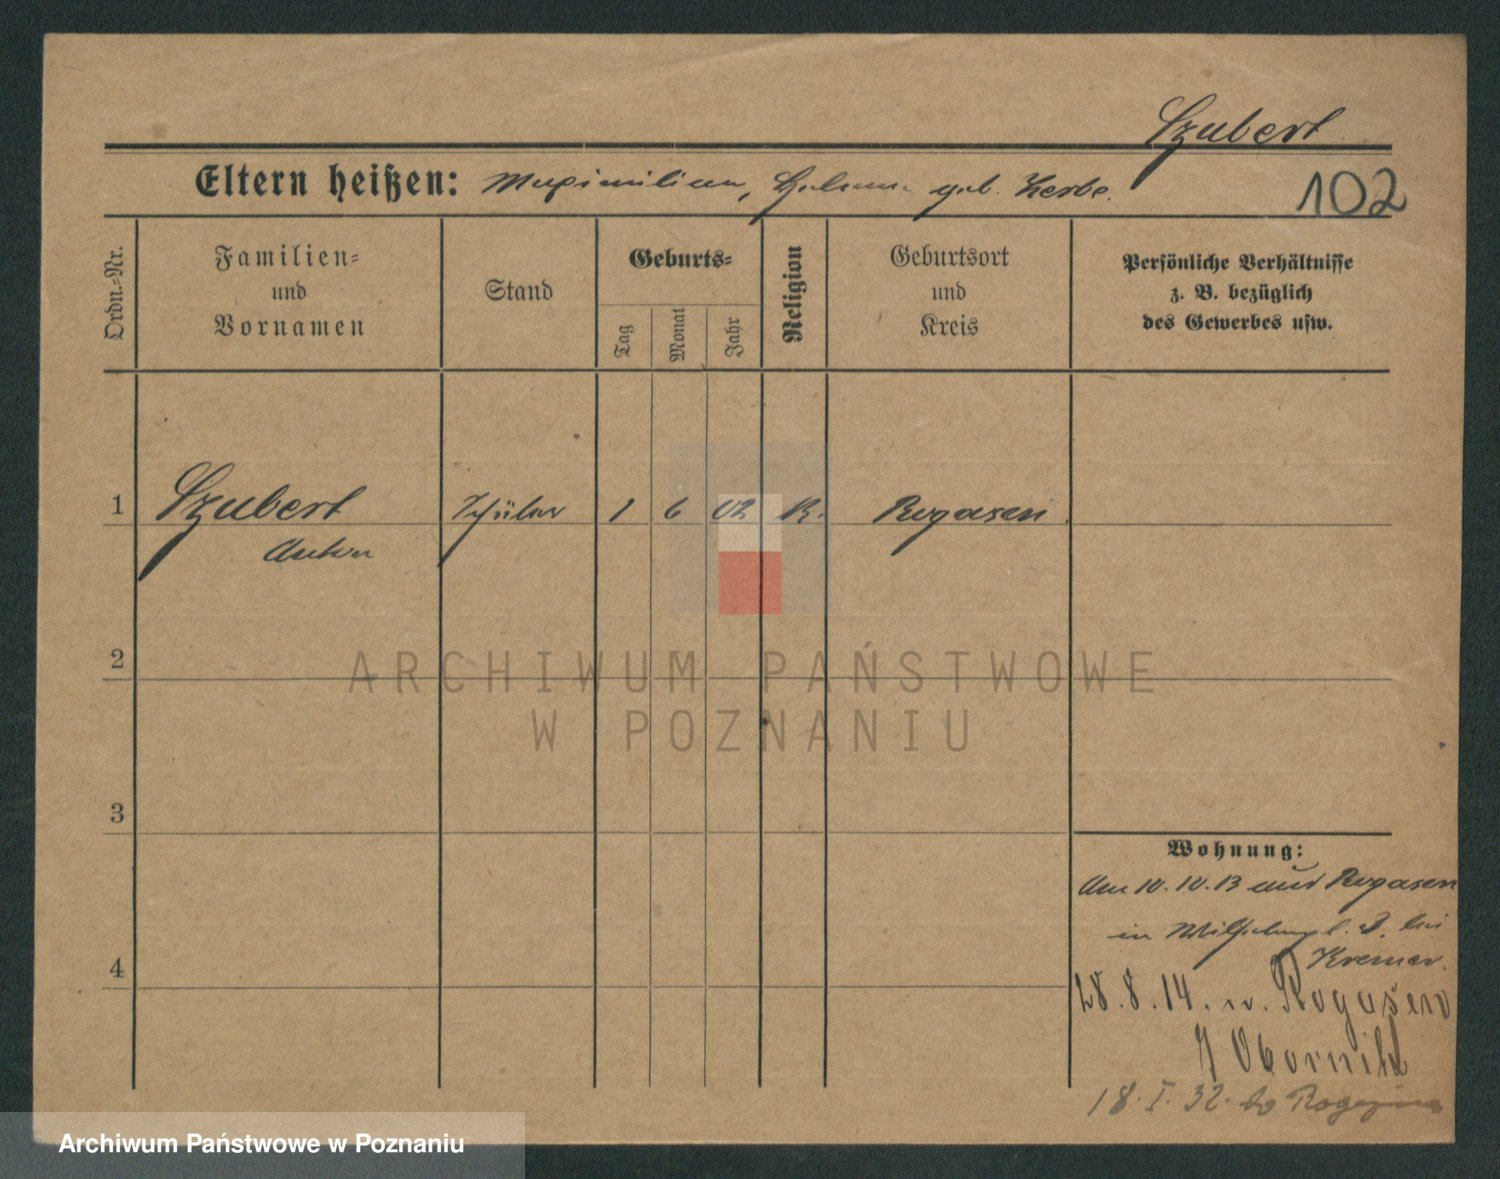 Szubert
Eltern heißen: Maximilian, geb. Zerbe.
102
Ordn.-Nr.
Familien-
und
Vornamen
Stand
Geburts-
Tag
Monat
Jahr
Religion
Geburtsort
und
Kreis
Persönliche Verhältnisse
z. B. bezüglich
des Gewerbes usw.
1 Szubert Schüler 1 6 02 K. Rogasen
Anton
2
ARCHIWUM PAŃSTWOWE
W POZNANIU
3
Wohnung:
Am 10.10.13 aus Rogasen
in 3. bei
Kremer.
4
28.8.14. n. Rogasen
Obornik
18.I.32. do Rogoźna
Archiwum Państwowe w Poznaniu